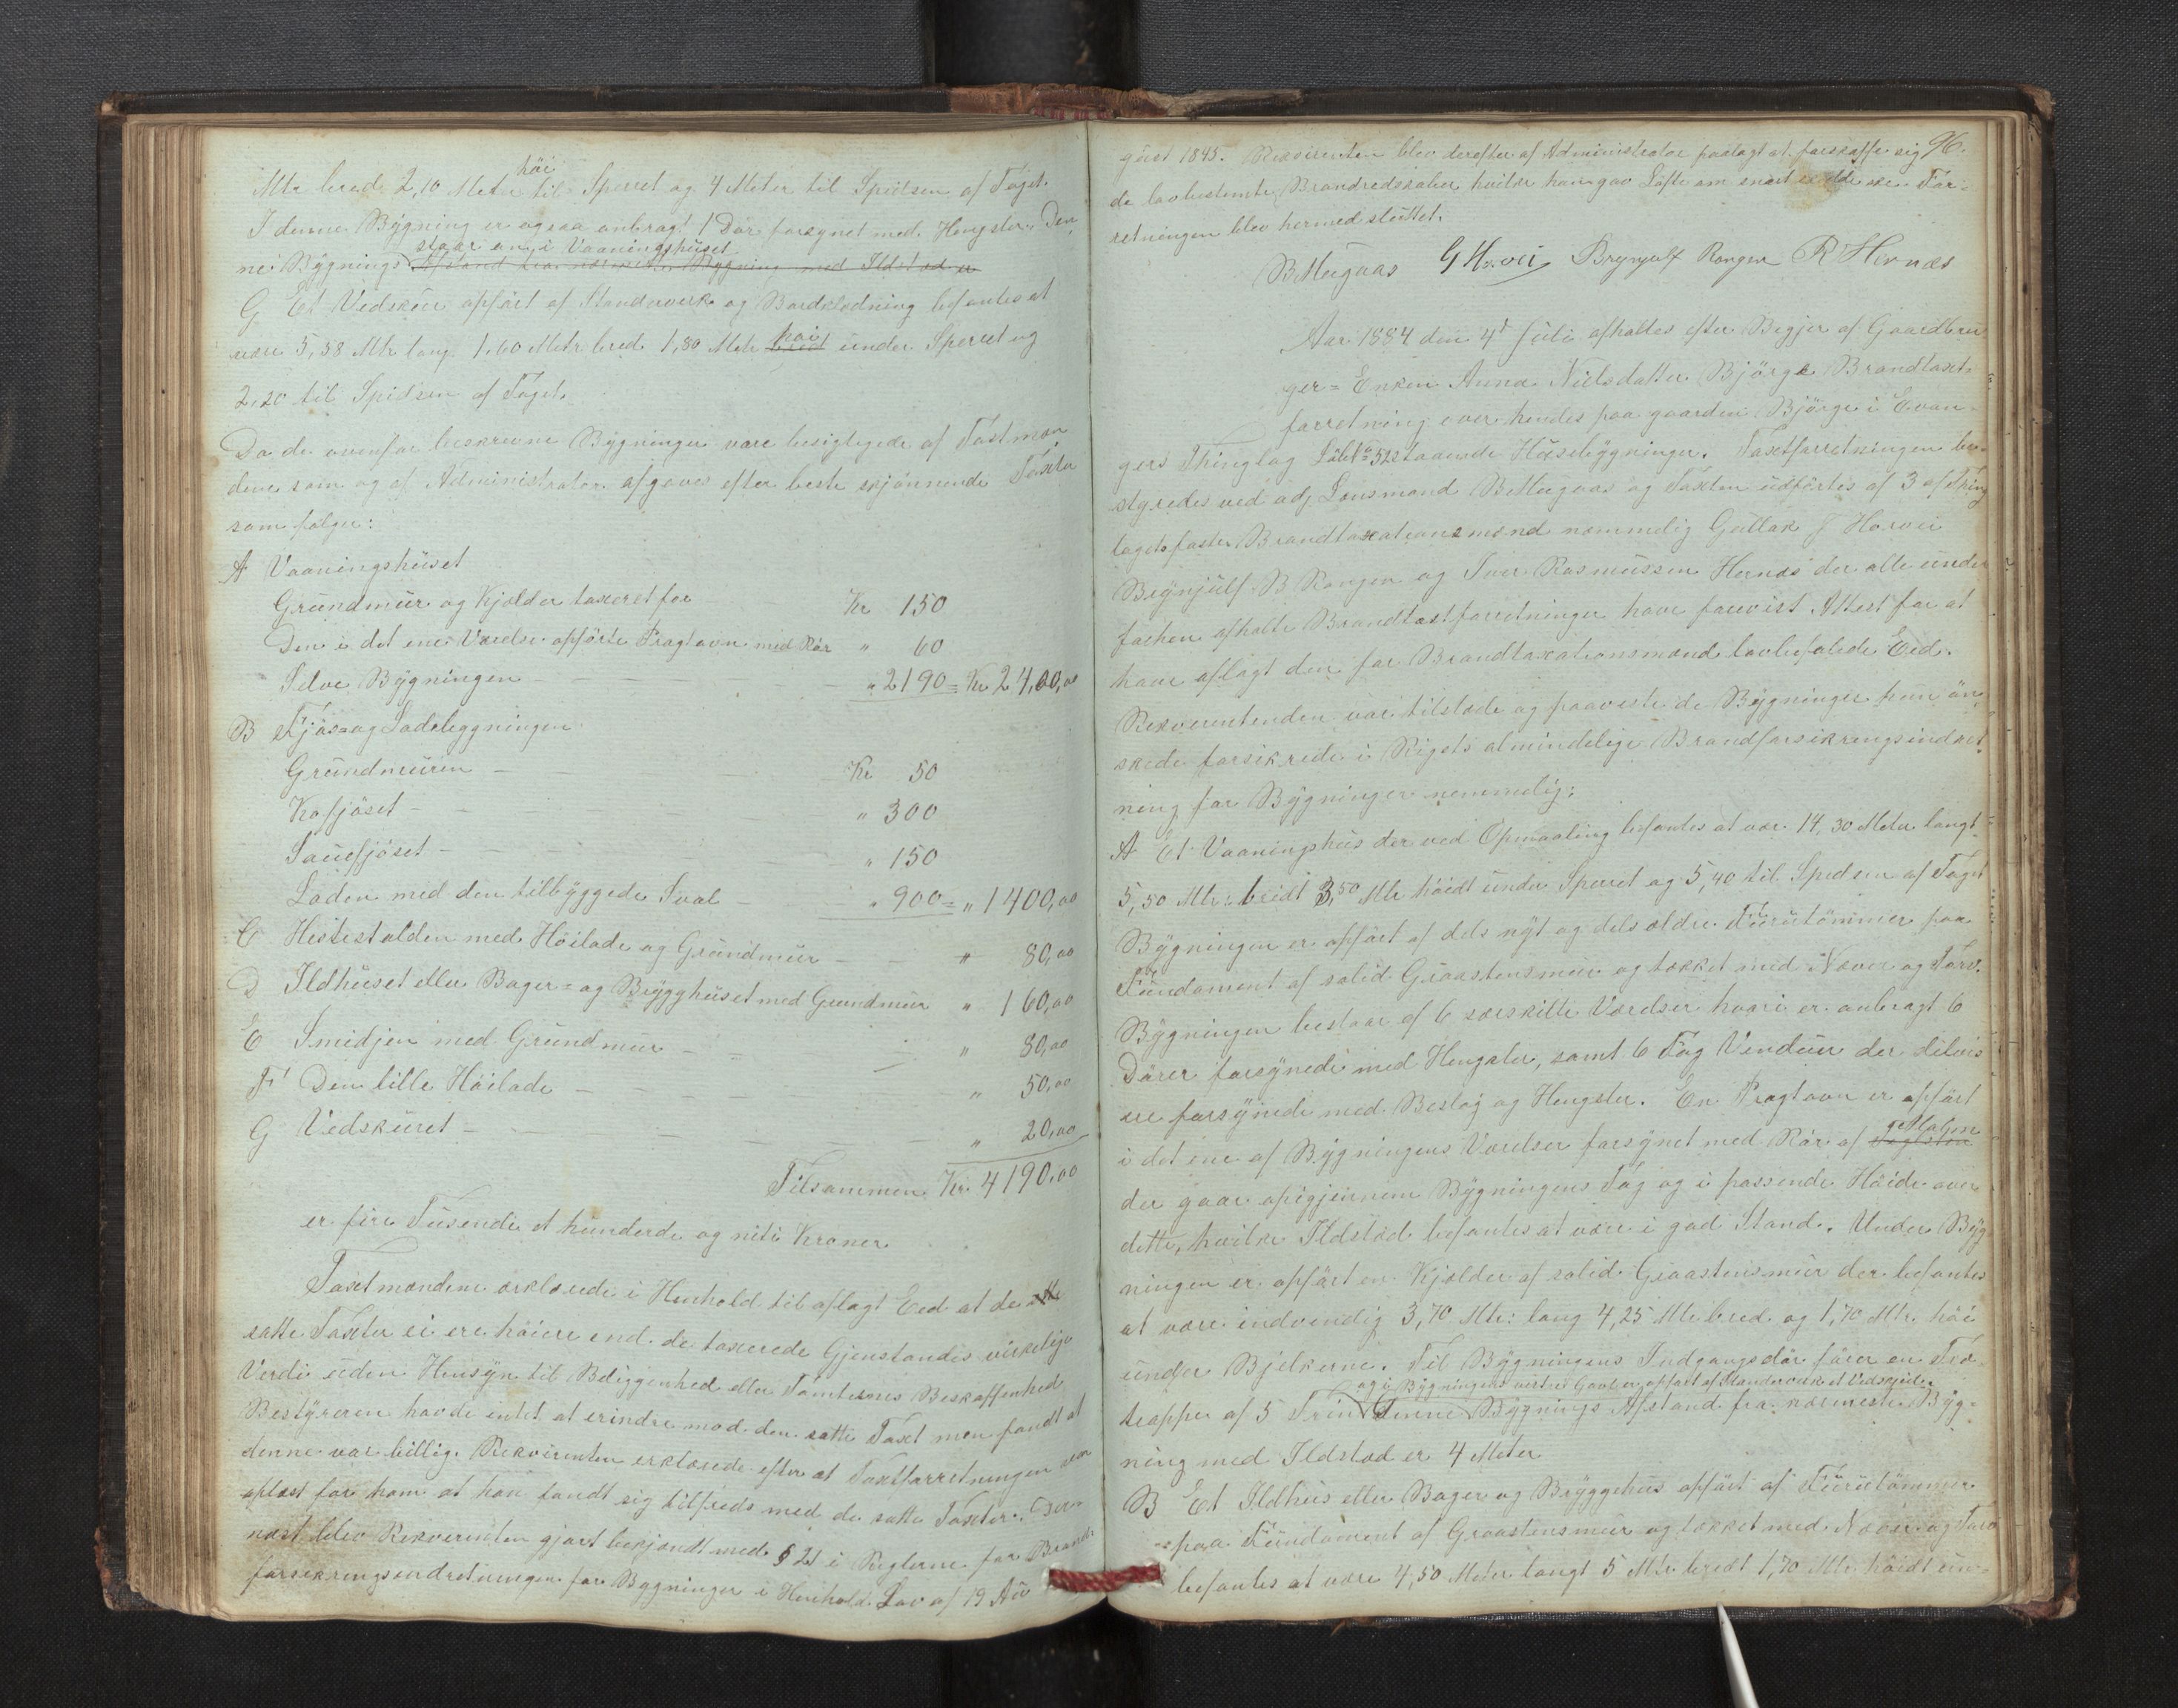 höi
Mtr bred 2,10 Meter til Sperret og 4 Meter til Spidsen af Taget.
I denne Bygning er ogsaa anbragt 1 Dør forsynet med Hengsler. Den-
staar an i Vaaningshuset
ne Bygnings Afstand fra nærmeste Bygning med Ildsted er
G Et Vedskur opført af Standerverk og Bordklædning befantes at
være 5,38 Mtr lang 1.60 Metr bred 1,80 Metr bred høi under Sperret og
2,20 til Spidsen af Taget.
Da de ovenfor beskrevne Bygninger vare besigtigede af Taxtmæn
dene som og af Administrator afgaves efter beste skjønnende Taxter
som følger:
A Vaaningshuset
Grundmur og Kjelder taxeret for Kr 150
Den i det ene Værelse opførte Fragtovn med Rør " 60
Selve Bygningen - - - - " 2190 = Kr 2400,00
B Fjøs= og Ladebyggningen
Grundmuren - - - Kr 50
Kofjøset - - - - " 300
Sauefjøset - - - - " 150
Laden med den tilbyggede Sval - " 900 = " 1400,00
C Hestestalden med Høilade og Grundmur - - " 80,00
D Ildhuset eller Bager= og Brygghuset med Grundmur " 160,00
E Smidjen med Grundmur - - - " 80,00
F Den lille Høilade - - - - " 50,00
G Vedskuret - - - - - " 20,00
Tilsammen Kr. 4190,00
er fire Tusende et hunderde og niti Kroner
Taxtmændene erklærede i Henhold til aflagt Eed at de
satte Taxter ei ere høiere end de taxerede Gjenstandes virkelige
Verdi uden Hensyn til Beliggenhed eller Tomternes Beskaffenhed
Bestyreren havde intet at erindre mod den satte Taxt men fandt at
denne var billig. Rekvirenten erklærede efter at Taxtforretningen var
oplæst for ham at han fandt sig tilfreds med de satte Taxter. Der-
næst blev Rekvirenten gjort bekjendt med § 21 i Reglerne for Brand-
forsikringsindretningen for Bygninger i Henhold Lov af 19 Au
96.
gust 1845. Rekvirenten blev derefter af Administrator paalagt at forskaffe sig
de lovbestemte Brandredskaber hvilke han gav Løfte om snart For-
retningen blev hermed sluttet.
B Mugaas G Horvei Brynjulf Rongen R Hernæs
Aar 1884 den 4de Juli afholtes efter Begjer af Gaardbru
ger= Enken Anna Nielsdatter Bjørge Brandtaxt-
forretning over hendes paa gaarden Bjørge i Evan-
gers Thinglag Løbe No 52 staaende Husebygninger. Taxtforretningen be-
styredes ved adj. Lensmand B Mugaas og Taxten udførtes af 3 af Thing
lagets faste Brandtaxationsmænd nemmelig Guttak J Horvei
Brynjulf B Rongen og Iver Rasmussen Hernæs der alle under
forhen afholte Brandtaxtforretninger have foreviist Attest for at
have aflagt den for Brandtaxationsmænd lovbefalede Eed.
Rekverentenden var tilstede og paaviste de Bygninger hun øn-
skede forsikrede i Rigets almindelige Brandforsikringsindret-
ning for Bygninger nemmelig:
A Et Vaaningshus der ved Opmaaling befantes at være 14,30 Meter langt
5,50 Mtr: breidt 3,50 Mtr høidt under Sperret og 5,40 til Spidsen af Taget
Bygningen er opført af dels nyt og dels ældre Furutømmer paa
Fundament af solid Graastensmur og tækket med Næver og Torv.
Bygningen bestaar af 6 særskilte Værelser hvori er anbragt 6
Dører forsynede med Hengsler, samt 6 Fag Venduer der deilvis
ere forsynede med Beslag og Hengsler. En Fragtovn er opført
Malm
i det ene af Bygningens Værelser forsynet med Rør af
der gaar opigjennem Bygningens Tag og i passende Høide over
dette, hvilke Ildsted befantes at være i god Stand. Under Byg-
ningen er opført en Kjelder af solid Graastensmur der befantes
at være indvendig 3,70 Mtr: lang 4,25 Mtr bred og 1,70 Mtr. høi
under Bjelkerne. Til Bygningens Indgangsdør fører en Træ-
og i Bygningens vestre Gavl er opført af Standerverk et Vedskjeder
trappe af 5 Trin Denne Bygnings Afstand fra nærmeste Byg-
ning med Ildsted er 4 Meter
B Et Ildhus eller Bager og Bryggehus opført af Furutømmer
paa Fundament af Graastensmur og tækket med Næver og Torv
befantes at være 4,50 Meter langt 5 Mtr bredt 1,70 Mtr. høidt un-